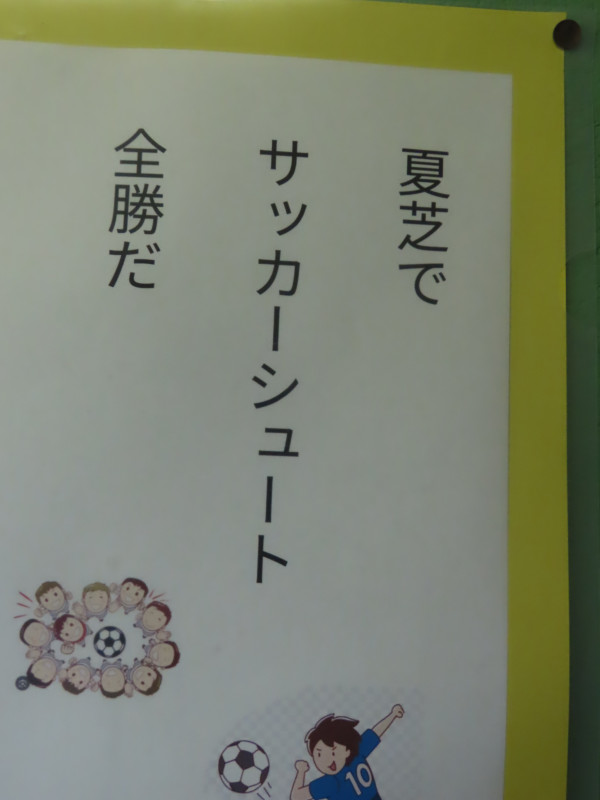 夏芝で
サッカーシュート
全勝だ
10